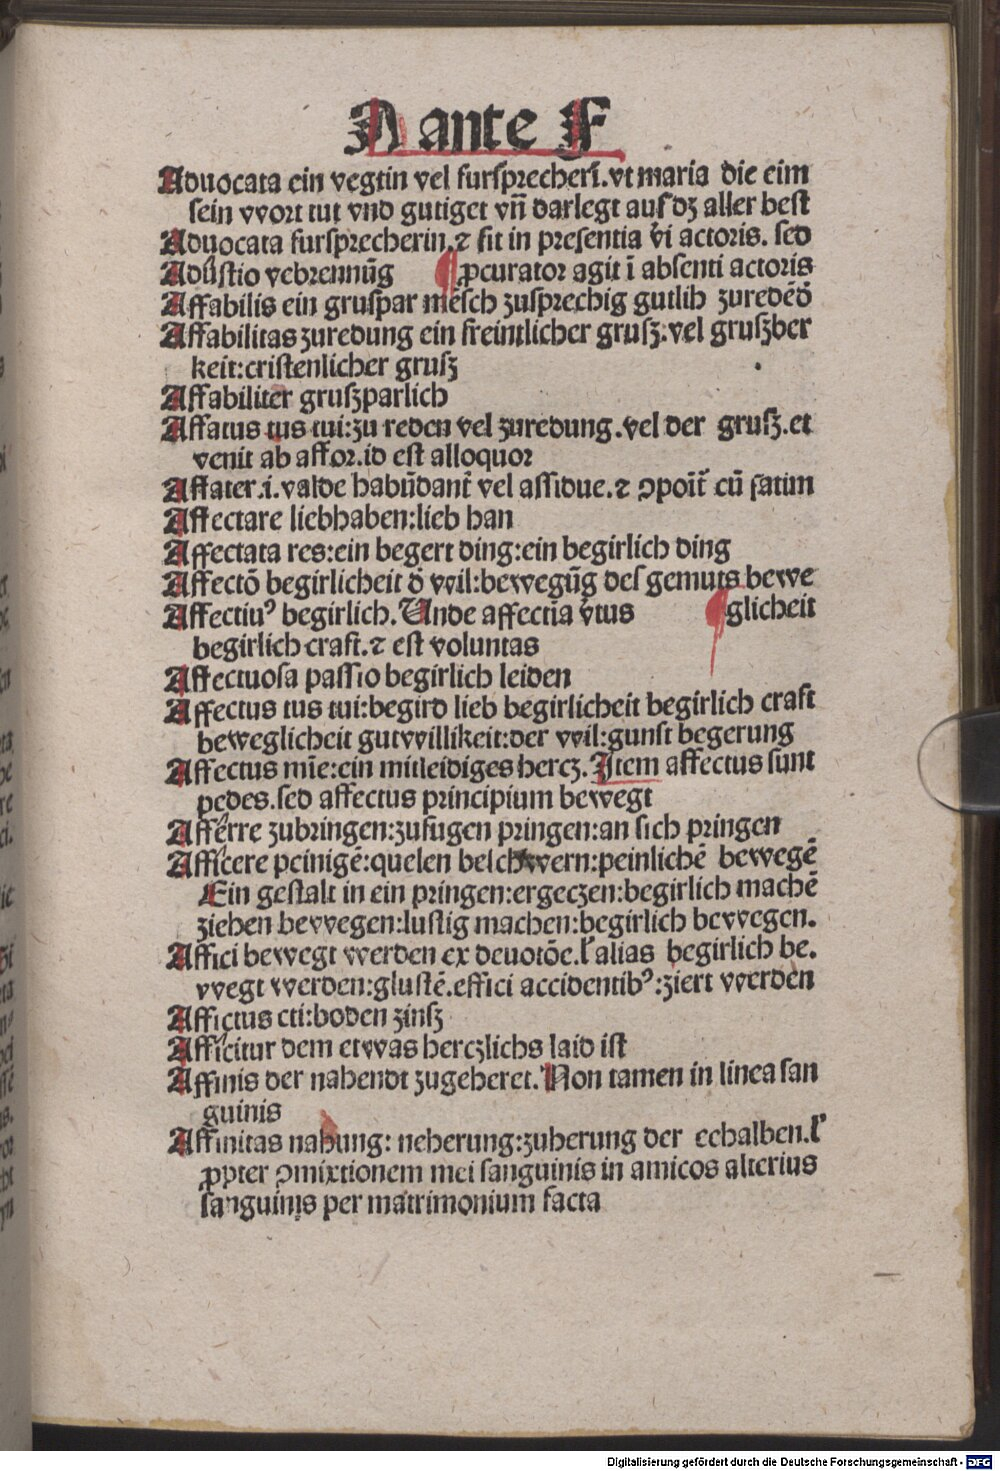 A ante F
Aduocata ein vegtin vel fursprecherī. vt maria die eim
sein wort tut vnd gutiget vn̄ darlegt auſ dz aller best
Aduocata fursprecherin. ⁊ fit in presentia vi actoris. sed
Adustio vebrennūg ¶ ꝓcurator agit ī absenti actoris
Affabilis ein gruspar mēsch zusprechig gutlih zuredēd
Affabilitas zuredung ein freintlicher grusz. vel gruszber
keit: cristenlicher grusz
Affabiliter gruszparlich
Affatus tus tui: zu reden vel zuredung. vel der grusz. et
venit ab affor. id est alloquor
Affater. i. valde habūdant̄ vel assidue. ⁊ ꝯpoīt̄ cū satim
Affectare liebhaben: lieb han
Affectata res: ein begert ding: ein begirlich ding
Affectō begirlicheit d̄ wil: bewegūg des gemuts bewe
Affectiuꝰ begirlich. Unde affectīa v̄tus ¶ glicheit
begirlich craft. ⁊ est voluntas
Affectuosa passio begirlich leiden
Affectus tus tui: begird lieb begirlicheit begirlich craft
beweglicheit gutwillikeit: der wil: gunst begerung
Affectus mīe: ein mitleidiges hercz. Item affectus sunt
pedes. sed affectus principium bewegt
Afferre zubringen: zufugen pringen: an sich pringen
Afficere peinigē: quelen belchwern: peinlichē bewegē
Ein gestalt in ein pringen: ergeczen: begirlich machē
ziehen bewegen: lustig machen: begirlich bewegen.
Affici bewegt werden ex deuotōe. l' alias begirlich be.
wegt werden: glustē. effici accidentibꝰ: ziert werden
Affictus cti: boden zinsz
Afficitur dem etwas herczlichs laid ist
Affinis der nahendt zugeheret. Non tamen in linea san
guinis
Affinitas nahung: neherung: zuherung der echalben. l'
ꝓpter ꝯmixtionem mei sanguinis in amicos alterius
sanguinis per matrimonium facta
Digitalisierung gefördert durch die Deutsche Forschungsgemeinschaft - DFG